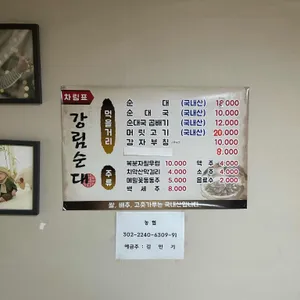 차림표
강림순대
먹을거리
순 대 (국내산) 18.000
순 대 국 (국내산) 10.000
순대국 곱배기 (국내산) 12.000
머릿고기 (국내산) 20.000
감자부침 10.000
8.000
주류
복분자힐무렵 10.000 맥 주 4.000
치악산막걸리 4.000 소 주 4.000
메밀꽃동동주 5.000 음료수 2.000
백 세 주 8.000
쌀, 배추, 고춧가루는 국내산입니다.
농협
302-2240-6309-91
예금주: 김